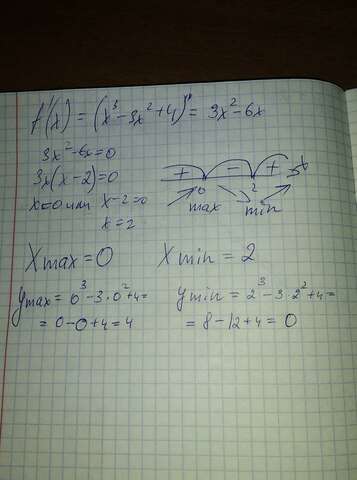 f'(x) = (x³ - 3x² + 4)' = 3x² - 6x
3x² - 6x = 0
3x(x - 2) = 0
x = 0 или x - 2 = 0
x = 2
+ - +
0 2
max min
Xmax = 0 Xmin = 2
ymax = 0³ - 3·0² + 4 =
= 0 - 0 + 4 = 4
ymin = 2³ - 3·2² + 4 =
= 8 - 12 + 4 = 0